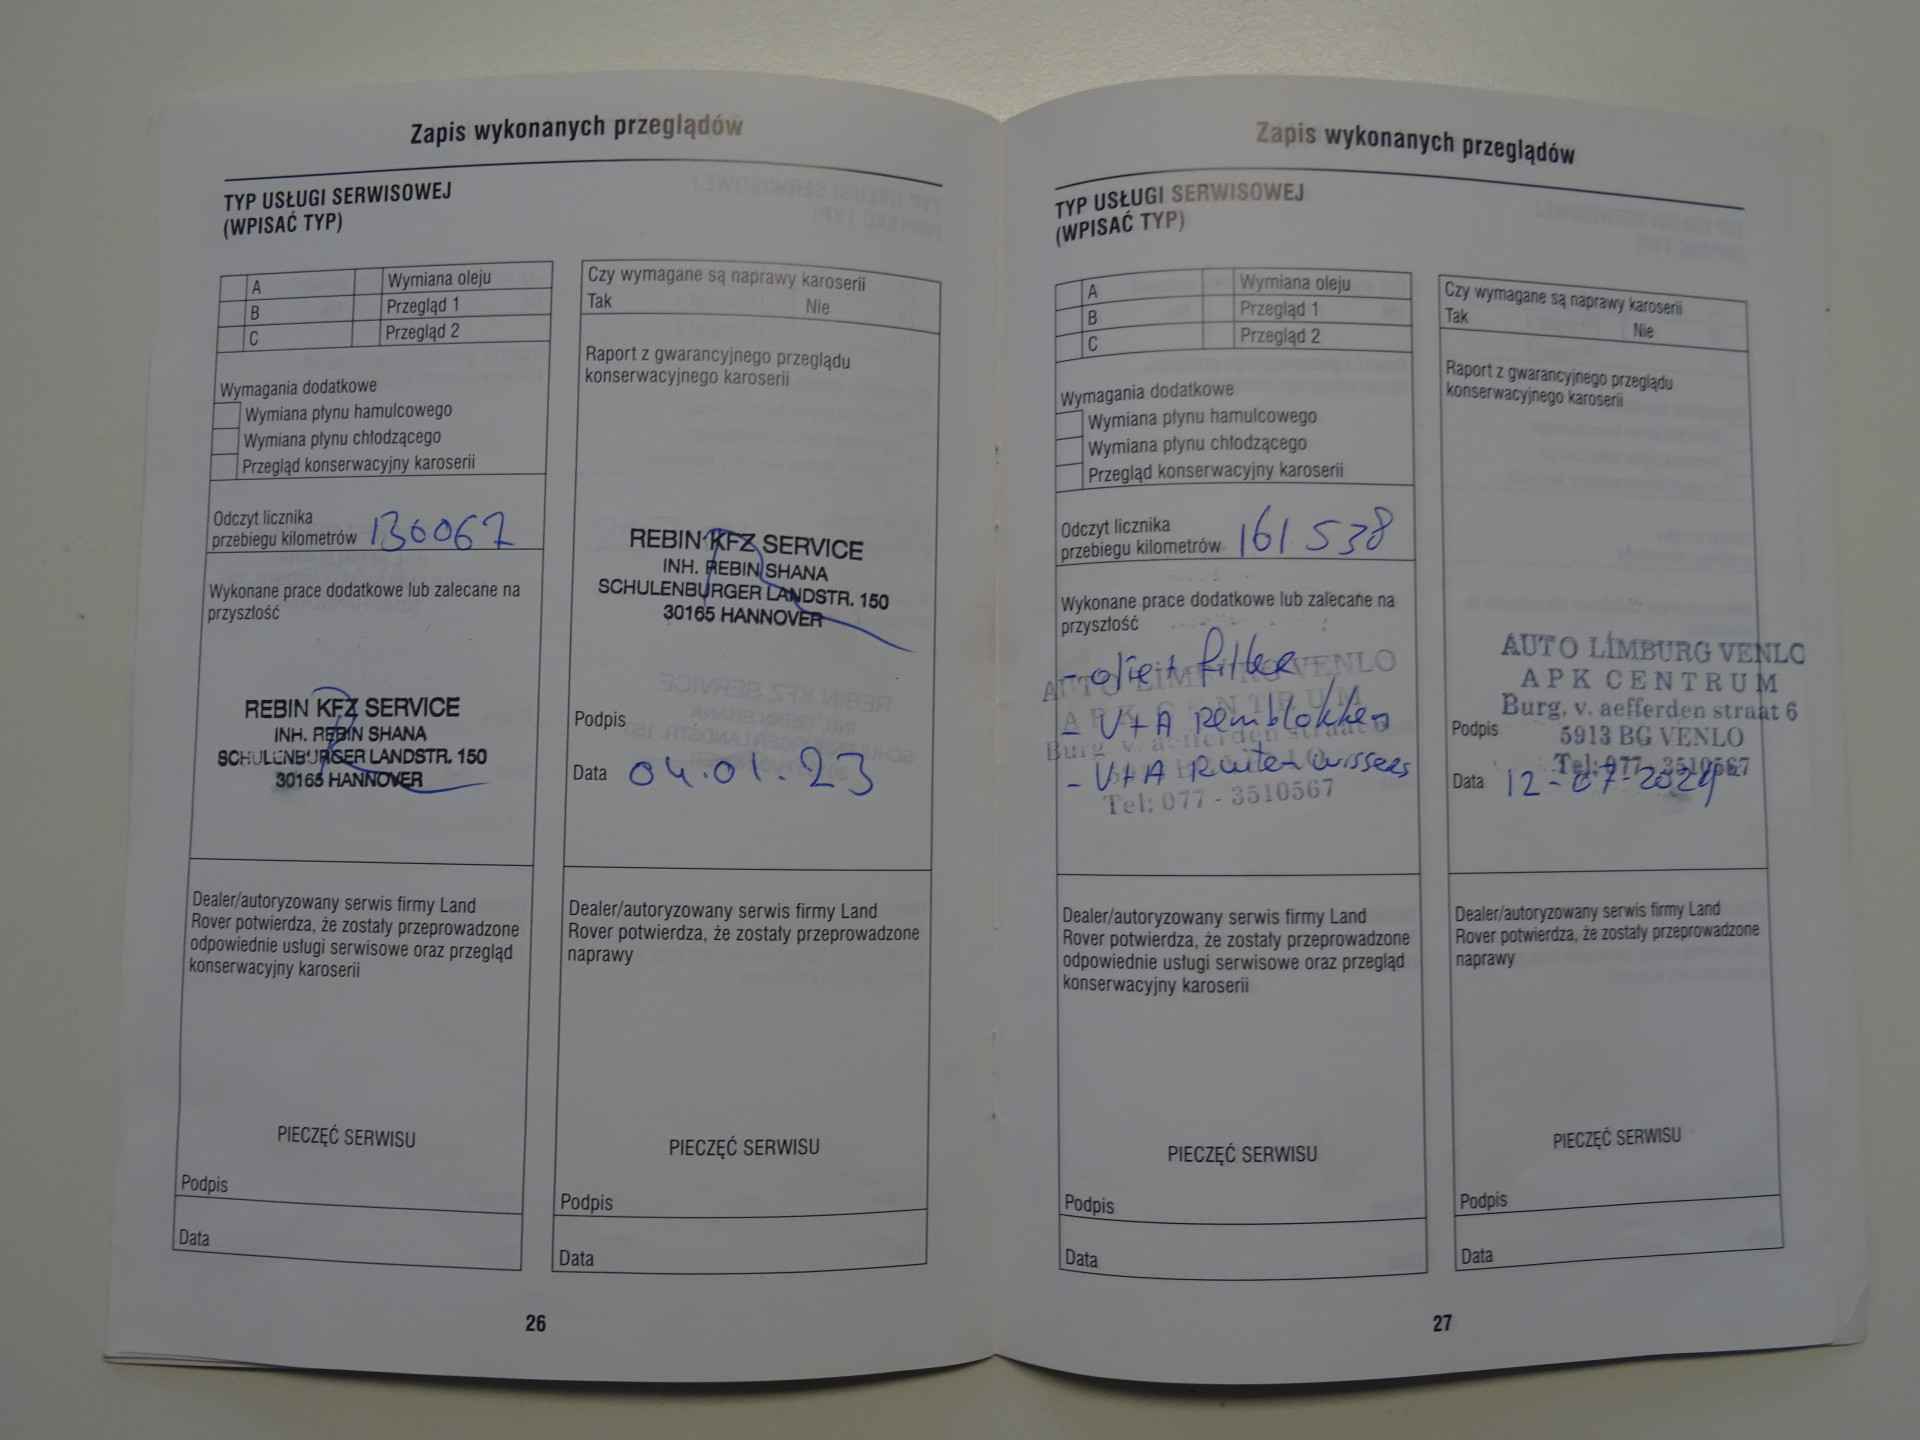 Zapis wykonanych przeglądów
TYP USŁUGI SERWISOWEJ
(WPISAĆ TYP)
A Wymiana oleju
B Przegląd 1
C Przegląd 2
Wymagania dodatkowe
Wymiana płynu hamulcowego
Wymiana płynu chłodzącego
Przegląd konserwacyjny karoserii
Odczyt licznika
przebiegu kilometrów 130067
Wykonane prace dodatkowe lub zalecane na
przyszłość
REBIN KFZ SERVICE
INH. REBIN SHANA
SCHULENBURGER LANDSTR. 150
30165 HANNOVER
Dealer/autoryzowany serwis firmy Land
Rover potwierdza, że zostały przeprowadzone
odpowiednie usługi serwisowe oraz przegląd
konserwacyjny karoserii
PIECZĘĆ SERWISU
Podpis
Data
Czy wymagane są naprawy karoserii
Tak Nie
Raport z gwarancyjnego przeglądu
konserwacyjnego karoserii
REBIN KFZ SERVICE
INH. REBIN SHANA
SCHULENBURGER LANDSTR. 150
30165 HANNOVER
Podpis
Data 04.01.23
Dealer/autoryzowany serwis firmy Land
Rover potwierdza, że zostały przeprowadzone
naprawy
PIECZĘĆ SERWISU
Podpis
Data
26
Zapis wykonanych przeglądów
TYP USŁUGI SERWISOWEJ
(WPISAĆ TYP)
A Wymiana oleju
B Przegląd 1
C Przegląd 2
Wymagania dodatkowe
Wymiana płynu hamulcowego
Wymiana płynu chłodzącego
Przegląd konserwacyjny karoserii
Odczyt licznika
przebiegu kilometrów 161 538
Wykonane prace dodatkowe lub zalecane na
przyszłość
- olie + filter
AUTO LIMBURG VENLO
APK CENTRUM
- V+A Remblokken
- V+A Ruitenwissers
Tel: 077 - 3510567
Dealer/autoryzowany serwis firmy Land
Rover potwierdza, że zostały przeprowadzone
odpowiednie usługi serwisowe oraz przegląd
konserwacyjny karoserii
PIECZĘĆ SERWISU
Podpis
Data
Czy wymagane są naprawy karoserii
Tak Nie
Raport z gwarancyjnego przeglądu
konserwacyjnego karoserii
AUTO LIMBURG VENLO
APK CENTRUM
Burg. v. aefferden straat 6
Podpis 5913 BG VENLO
Tel: 077 - 3510567
Data 12-07-2024
Dealer/autoryzowany serwis firmy Land
Rover potwierdza, że zostały przeprowadzone
naprawy
PIECZĘĆ SERWISU
Podpis
Data
27